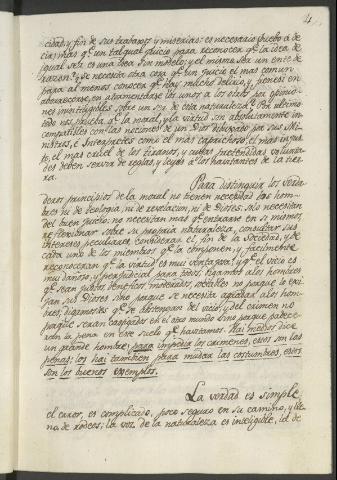 4
cidad y fin de sus trabajos y miserias: es necesario vuelvo á de
cir, mas qe. un tal qual juicio para reconocer qe. la idea de
igual ser es una idea sin modelo; y el mismo ser un ente de
razon? Se necesita otra cosa qe. un juicio el mas comun
para al menos conocer qe. hay mucho delirio, y frenesi en
aborrecerse, en atormentarse los unos a los otros por opinio
nes ininteligibles sobre un ser de esta naturaleza? Por ultimo
todo nos prueba qe. la moral, y la virtud son absolutamente in
compatibles con las nociones de un Dios dibujado por sus Mi
nistros, é Interpretes como el mas caprichoso, el mas injus
to, el mas cruel de los tiranos, y cuyas pretendidas volunta
des deben servir de reglas, y leyes á los havitantes de la tier
ra.
Para distinguir los verda
deros principios de la moral no tienen necesidad los hom
bres ni de teologia, ni de revelacion, ni de Dioses: solo necesitan
del buen juicio: no necesitan mas qe. entrarse en si mismos,
reflexionar sobre su propia naturaleza, consultar sus
intereses peculiares, considerar el fin de la Sociedad, y de
cada uno de los miembros qe. la componen, y facilmente
reconoceran qe. la virtud es mui ventajosa, y qe. el vicio es
mui dañoso, y perjudicial para todos. Digamos a los hombres
qe. sean justos, beneficos, moderados, sociables no porque lo exi
jan sus Dioses sino porque se necesita agradar a los hom
bres; digamosles qe. se abstengan del vicio, y el crimen no
porque seran castigados en el otro mundo sino porque padece
ran la pena en este suelo qe. havitamos. Hai medios dice
un grande hombre, para impedir los crimenes, estos son las
penas; los hai tambien para mudar las costumbres, estos
son los buenos exemplos.
La verdad es simple,
el error, es complicado, poco seguro en su camino, y lle
no de rodeos; la voz de la naturaleza es inteligible, la de